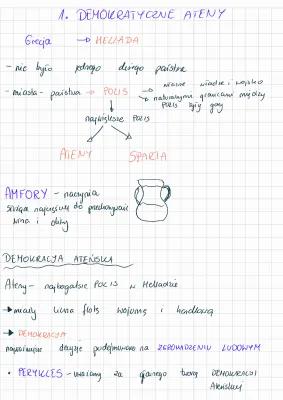 1. DEMOKRATYCZNE ATENY
Grecja → HELLADA
- nie było jednego dużego państwa
- miasta - państwa → POLIS → własne władze i wojsko
→ naturalnymi granicami między POLIS były góry
największe POLIS
ATENY SPARTA
AMFORY - naczynia
służące najczęściej do przechowywania
wina i oliwy
DEMOKRACJA ATEŃSKA
Ateny - najbogatsze POLIS w Helladzie
→ miały silną flotę wojenną i handlową
→ DEMOKRACJA
najważniejsze decyzje podejmowano na ZGROMADZENIU LUDOWYM
• PERYKLES - uważany za głównego twórcę DEMOKRACJI
Ateńskiej